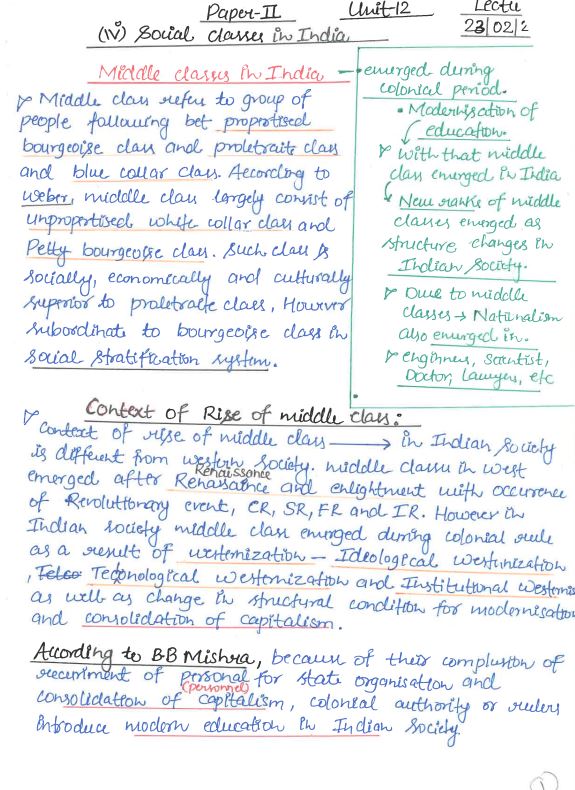 Paper-II Unit-12 Lectu
(iv) Social classes in India 23/02/2
Middle classes in India →
➢ Middle class refer to group of
people following bet propertised
bourgeoise class and proletraite class
and blue collar class. According to
Weber, middle class largely consist of
unpropertised white collar class and
Petty bourgeoise class. Such class is
socially, economically and culturally
superior to proletraite class, However
subordinate to bourgeoise class in
social stratification system.
emerged during
colonial period.
• Modernisation of
education.
➢ with that middle
class emerged in India
New ranks of middle
classes emerged as
structure changes in
Indian Society.
➢ Due to middle
classes → Nationalism
also emurged in.
➢ enginners, scientist,
Doctor, Lawyers, etc
Context of Rise of middle class:
➢ Context of rise of middle class ⟶ in Indian Society
is different from western society. middle classes in west
Renaissance
emerged after Renassaince and enlightment with occurence
of Revolutionary event, CR, SR, FR and IR. However in
Indian society middle class emerged during colonial rule
as a result of westernization - Ideological westernization
, Telco Technological westernization and Institutional westernis
as well as change in structural condition for modernisation
and consolidation of capitalism.
According to B·B Mishra, because of their complusion of
recuriment of personal for state organisation and
(personnel)
consolidation of capitalism, colonial authority or rulers
introduce modern education in Indian Society.
1